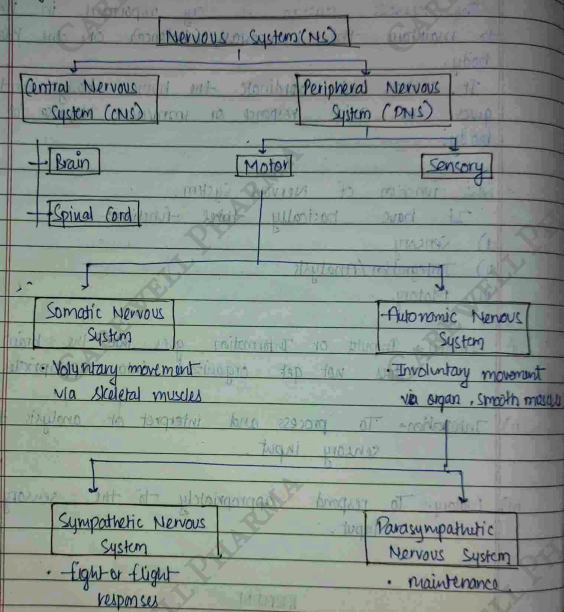 Nervous System (NS)
Central Nervous
System (CNS)
Peripheral Nervous
System (PNS)
Brain
Motor
Sensory
Spinal Cord
Somatic Nervous
System
Autonomic Nervous
System
• Voluntary movement
via skeletal muscles
• Involuntary movement
via organ, smooth
Sympathetic Nervous
System
Parasympathetic
Nervous System
• fight or flight
responses
• maintenance
CAREWELL PHARMA